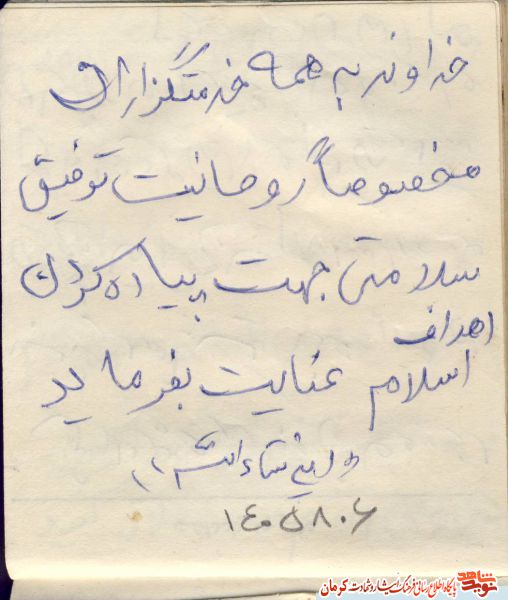 خداوند به همه خدمتگزاران
مخصوصاً روحانیت توفیق
سلامتی جهت پیاده کردن
اهداف
اسلام عنایت بفرماید
«انشاءالله»
نوید شاهد
پایگاه اطلاع رسانی فرهنگ ایثار و شهادت کرمان